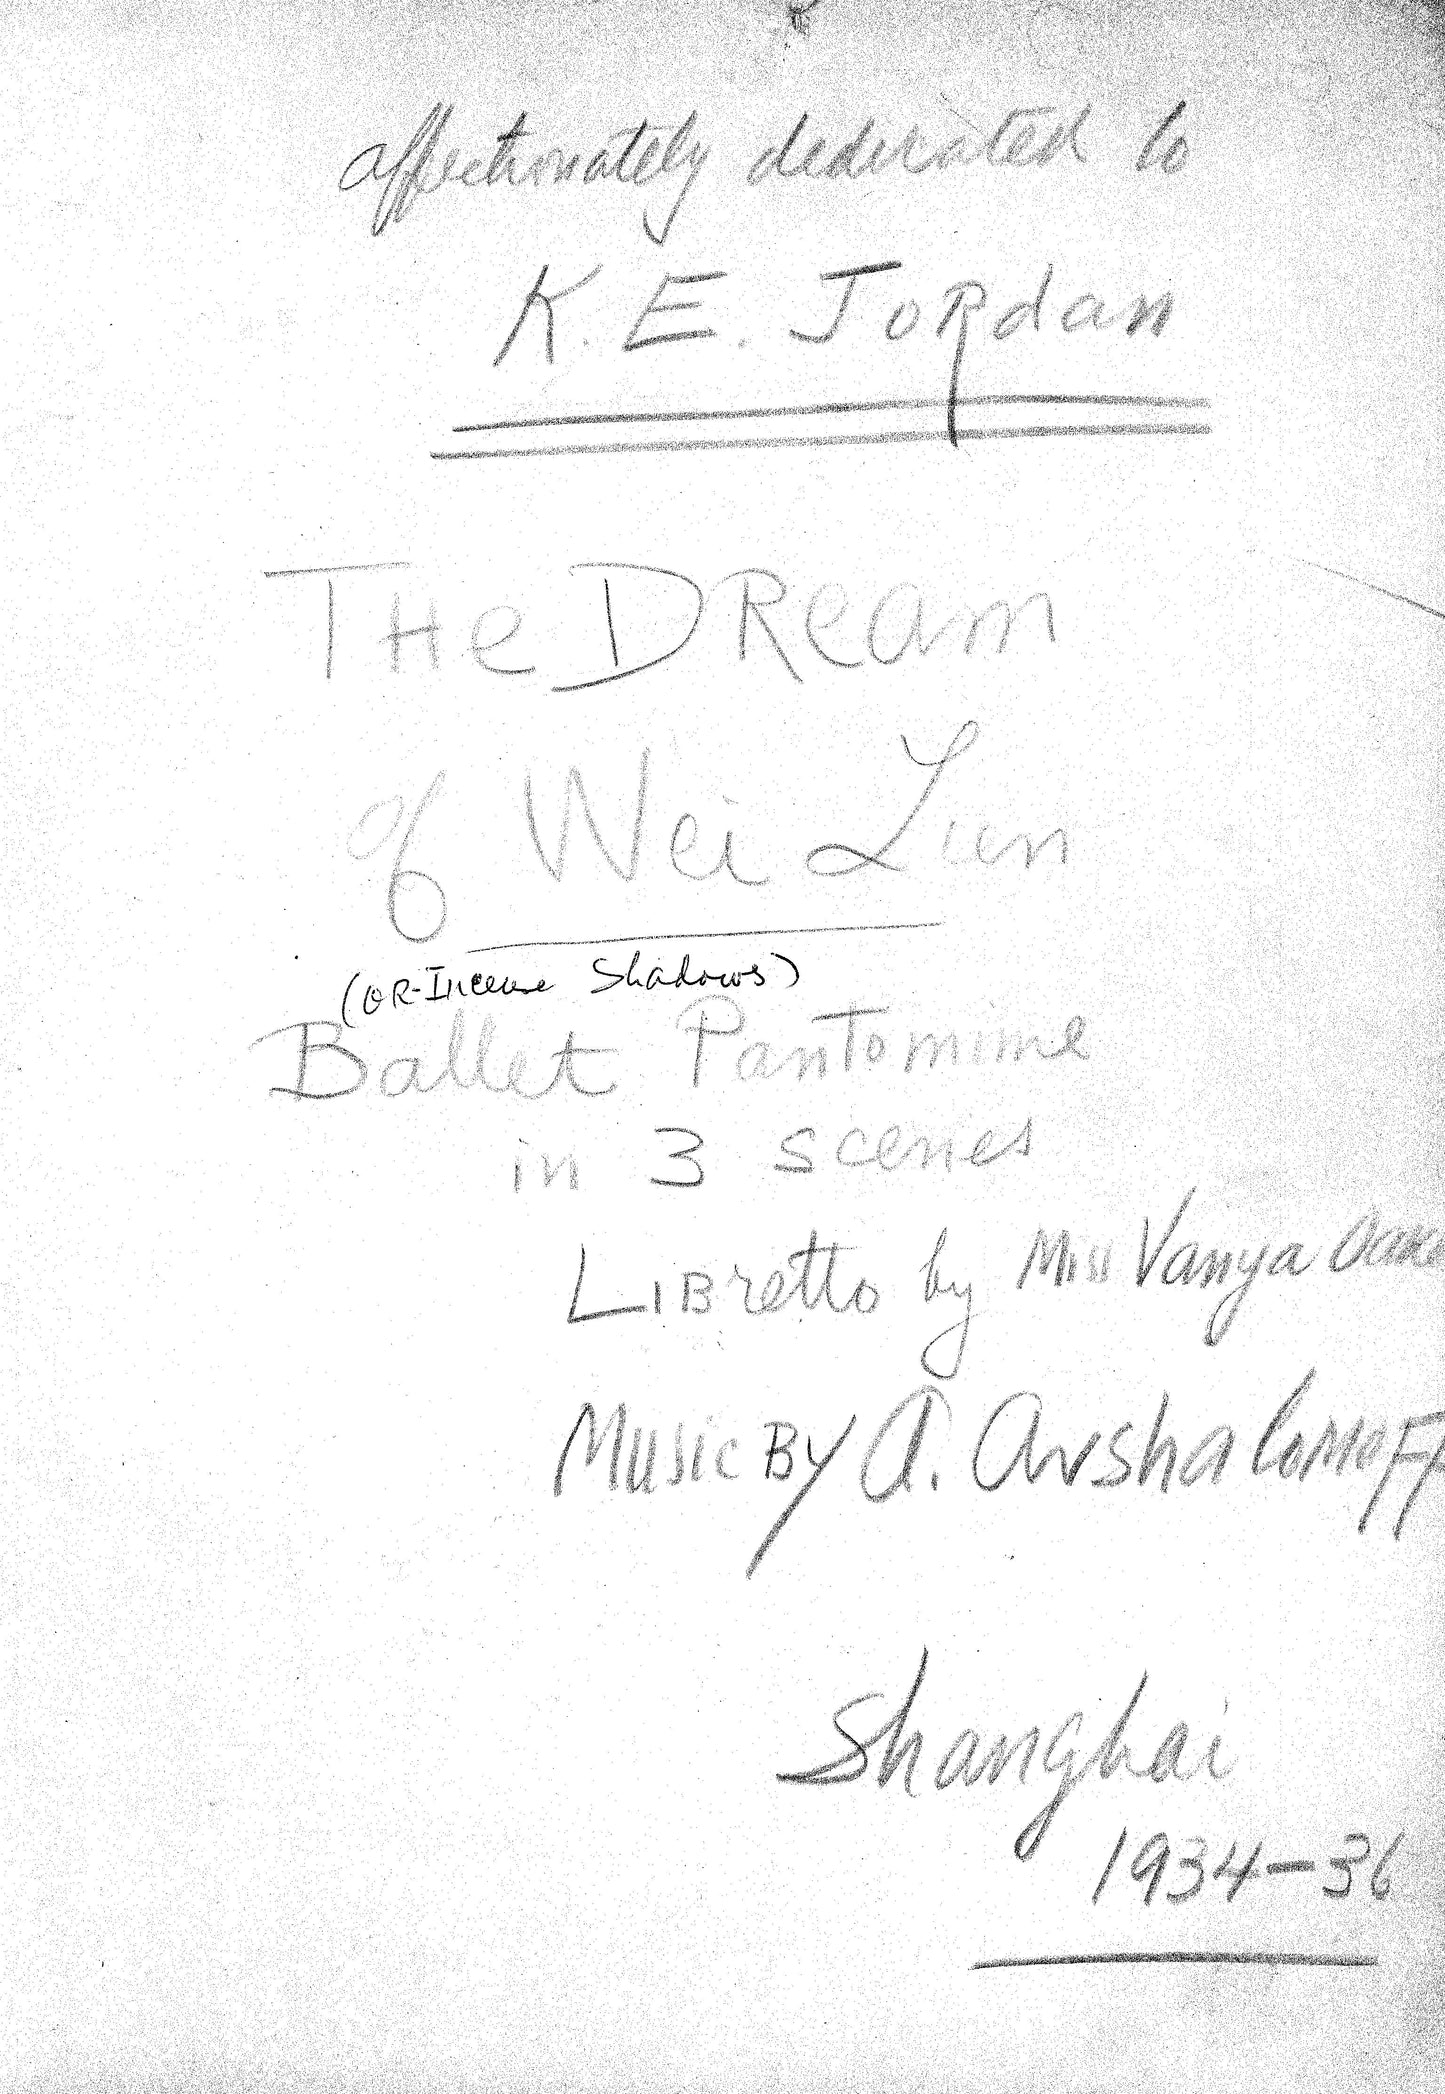 affectionately dedicated to
K. E. Jordan
The Dream
of Wei Lun
(OR-Incense Shadows)
Ballet Pantomime
in 3 scenes
Libretto by Miss Vanya Oake
Music By A. Avshalomoff
Shanghai
1934-36